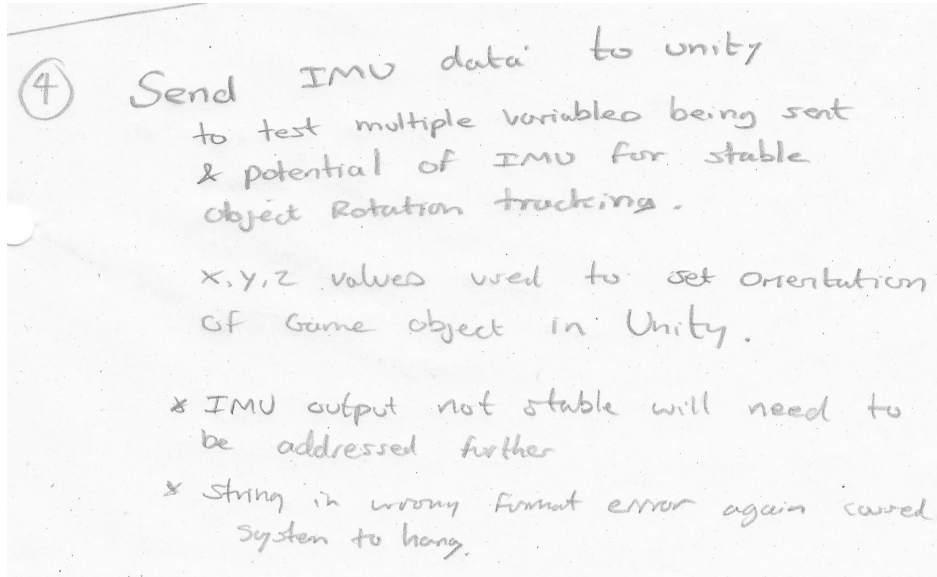 ④ Send IMU data to unity
to test multiple variables being sent
& potential of IMU for stable
object Rotation tracking.
x, y, z values used to set orientation
of Game object in Unity.
* IMU output not stable will need to
be addressed further
* String in wrong format error again caused
system to hang.